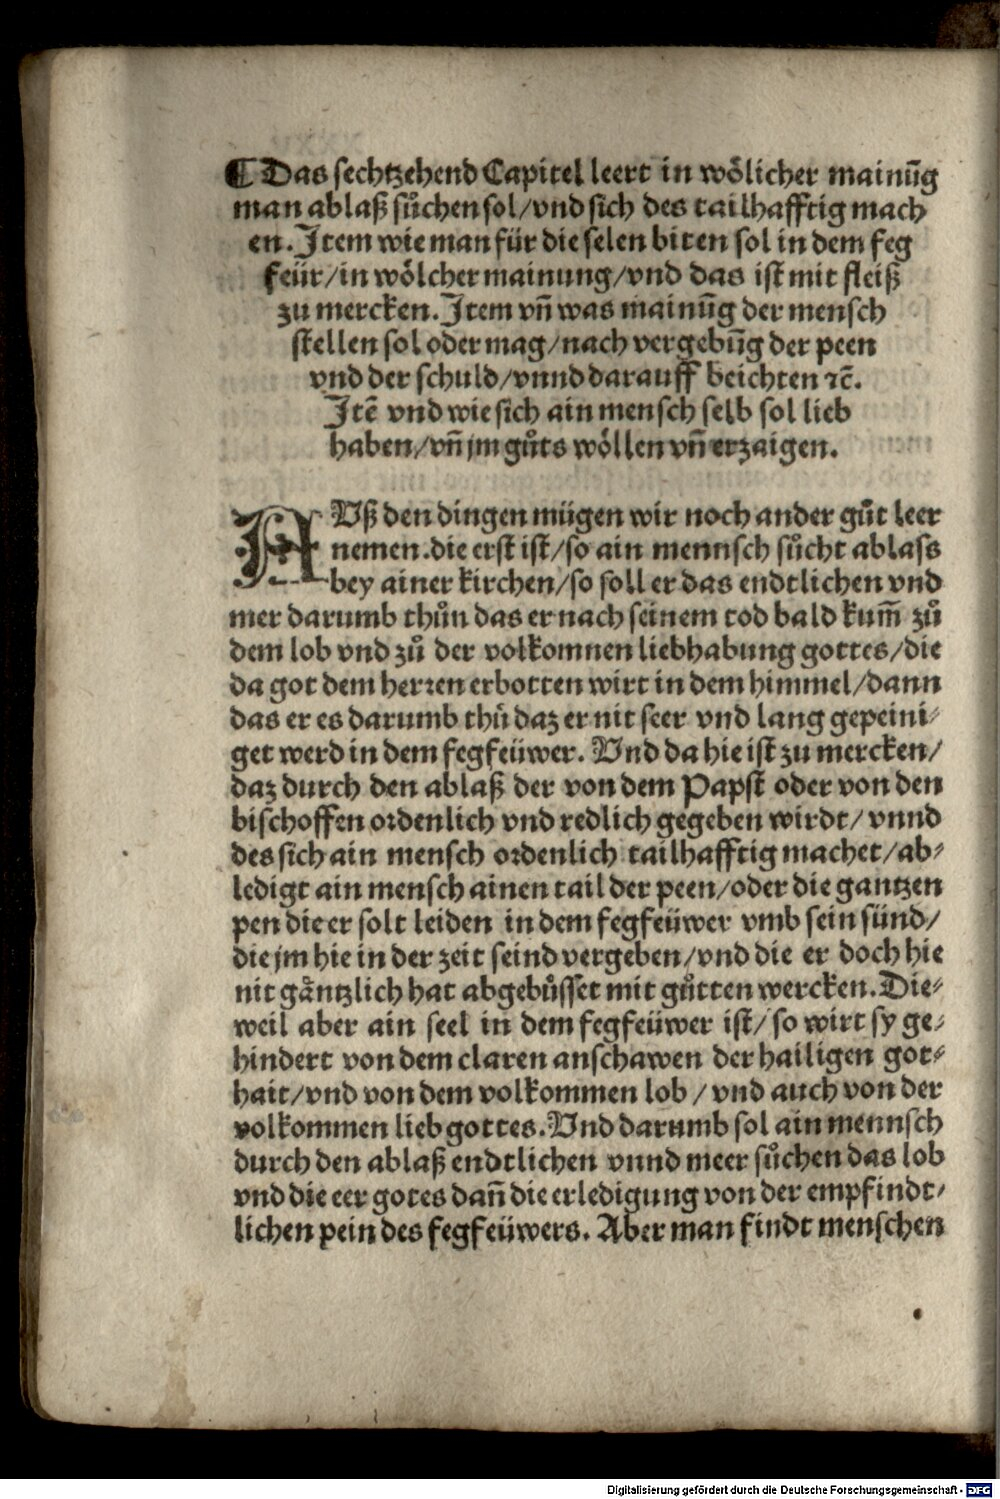 ¶ Das sechtzehend Capitel leert in woͤlicher mainūg
man ablaß suͦchen sol/vnd sich des tailhafftig mach
en. Item wie man für die selen biten sol in dem feg
feür/in woͤlcher mainung/vnd das ist mit fleiß
zu mercken. Item vn̄ was mainūg der mensch
stellen sol oder mag/nach vergebūg der peen
vnd der schuld/vnnd darauff beichten ⁊c̄.
Itē vnd wie sich ain mensch selb sol lieb
haben/vn̄ jm guͦts woͤllen vn̄ erzaigen.
AVß den dingen mügen wir noch ander guͦt leer
nemen.die erst ist/so ain mennsch suͦcht ablass
bey ainer kirchen/so soll er das endtlichen vnd
mer darumb thuͦn das er nach seinem tod bald kum̄ zuͦ
dem lob vnd zuͦ der volkomnen liebhabung gottes/die
da got dem herꝛen erbotten wirt in dem himmel/dann
das er es darumb thuͦ daz er nit seer vnd lang gepeini⸗
get werd in dem fegfeüwer. Vnd da hie ist zu mercken/
daz durch den ablaß der von dem Papst oder von den
bischoffen oꝛdenlich vnd redlich gegeben wirdt/ vnnd
des sich ain mensch oꝛdenlich tailhafftig machet/ab⸗
ledigt ain mensch ainen tail der peen/oder die gantzen
pen die er solt leiden in dem fegfeüwer vmb sein sünd/
die jm hie in der zeit seind vergeben/vnd die er doch hie
nit gaͤntzlich hat abgebuͤsset mit guͦtten wercken. Die⸗
weil aber ain seel in dem fegfeüwer ist/ so wirt sy ge⸗
hindert von dem claren anschawen der hailigen got⸗
hait/vnd von dem volkommen lob / vnd auch von der
volkommen lieb gottes. Vnd darumb sol ain mennsch
durch den ablaß endtlichen vnnd meer suͦchen das lob
vnd die eer gotes dan̄ die erledigung von der empfindt⸗
lichen pein des fegfeüwers. Aber man findt menschen
Digitalisierung gefördert durch die Deutsche Forschungsgemeinschaft - DFG